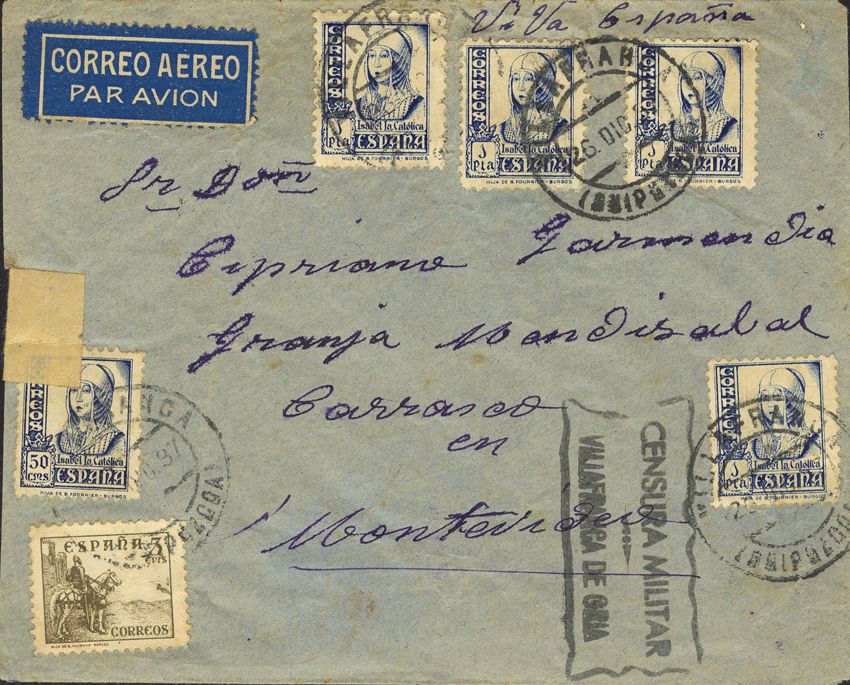 ViVa España
CORREO AEREO
PAR AVION
CORREOS
1 Pta
Isabel la Católica
ESPAÑA
HIJA DE B. FOURNIER - BURGOS
CORREOS
1 Pta
Isabel la Católica
ESPAÑA
HIJA DE B. FOURNIER - BURGOS
CORREOS
1 Pta
Isabel la Católica
ESPAÑA
HIJA DE B. FOURNIER - BURGOS
26 DIC
(GUIPUZCOA)
Sr Don
Cipriano Garmendia
Granja Mendisabal
Carrasco
en
Montevideo
CORREOS
50 CTMS
Isabel la Católica
ESPAÑA
HIJA DE B. FOURNIER - BURGOS
CORREOS
1 Pta
Isabel la Católica
ESPAÑA
HIJA DE B. FOURNIER - BURGOS
CENSURA MILITAR
VILLAFRANCA DE ORIA
ESPAÑA 5 CTS
CORREOS
HIJA DE B. FOURNIER - BURGOS